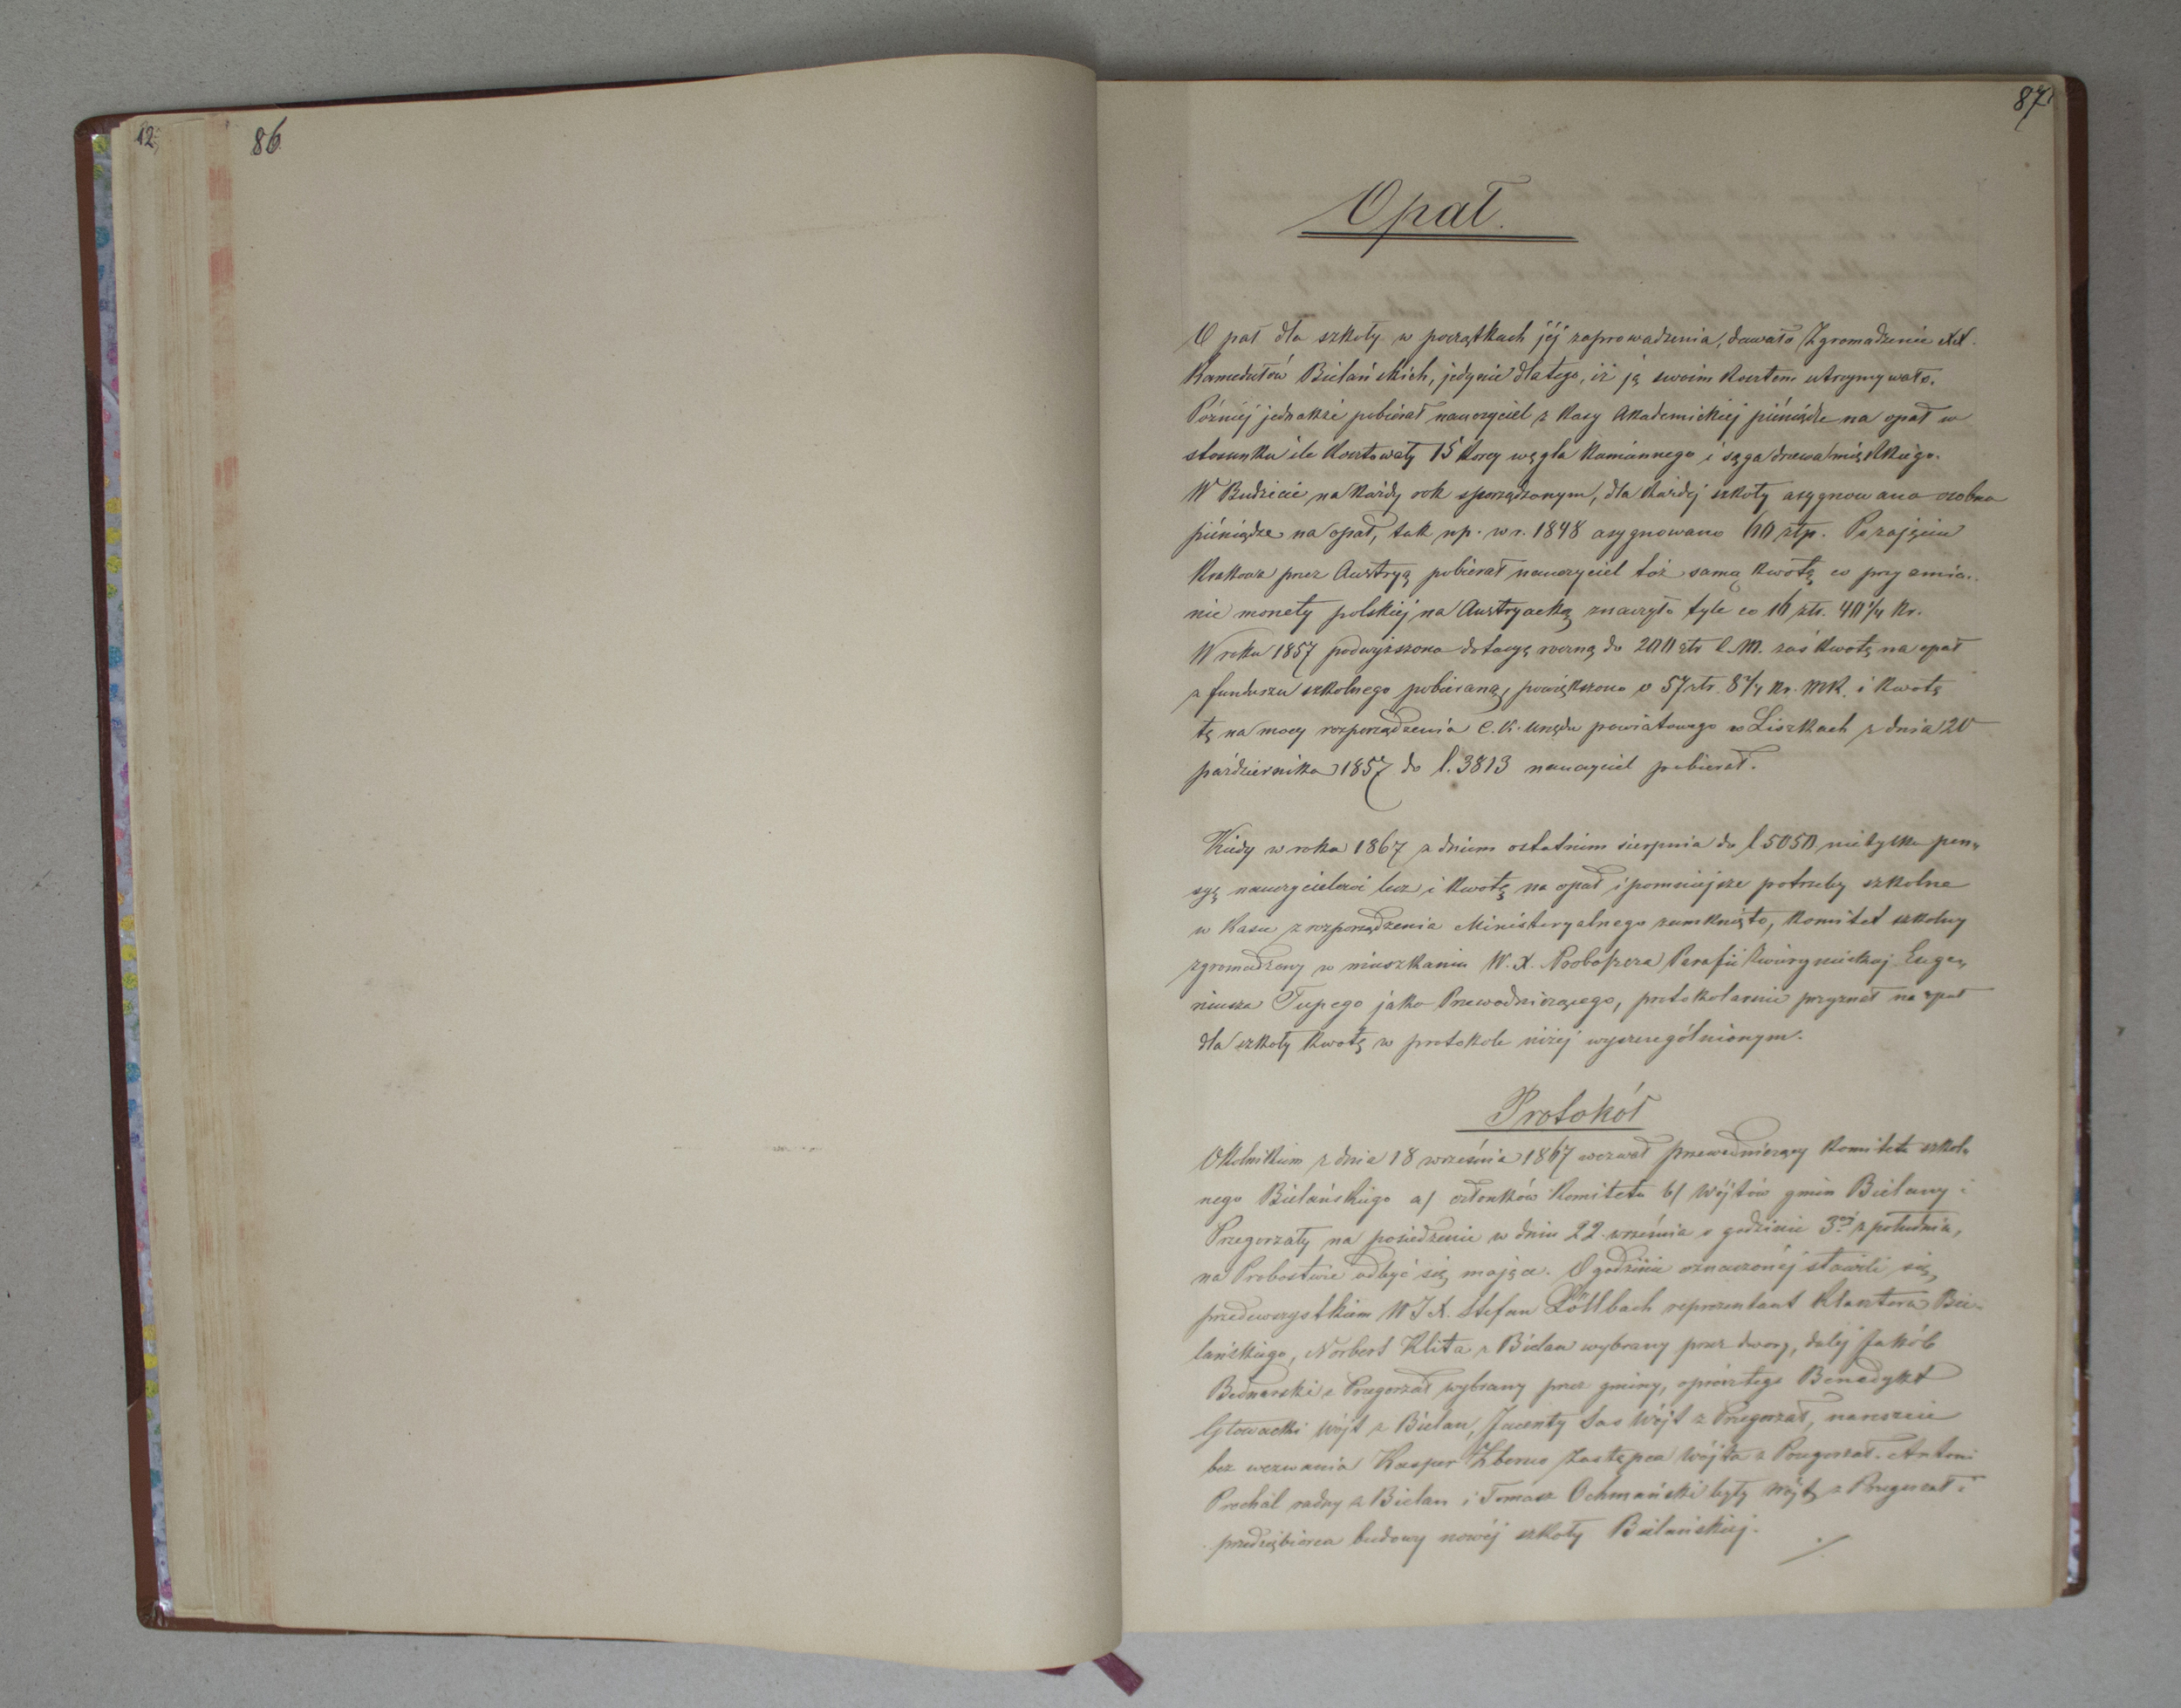 12
86
87
Opał.
Opał dla szkoły w początkach jéj zaprowadzenia, dawało Zgromadzenie XX.
Kamedułów Bielańskich, jedynie dlatego, iż ją swoim kosztem utrzymywało.
Późniéj jednakże pobierał nauczyciel z kasy Akademickiéj piéniądze na opał w
stosunku ile kosztowały 15 korcy węgla kamiennego i sąga drzewa miękkiego.
W Budżecie na każdy rok sporządzonym, dla każdéj szkoły asygnowano osobno
piéniądze na opał, tak np. w r. 1848 asygnowano 60 złp. Po zajęciu
Krakowa przez Austryą pobierał nauczyciel toż samą kwotę co przy zmia-
nie monety polskiéj na Austryacką znaczyło tyle co 16 złr. 40 1/4 kr.
W roku 1857 podwyższono dotacyę roczną do 200 złr C.M. zaś kwotę na opał
z funduszu szkolnego pobieraną, powiększono o 57 złr. 8 1/4 kr. MK. i kwotę
tę na mocy rozporządzenia C.K. urzędu powiatowego w Liszkach z dnia 20
października 1857 do l. 3813 nauczyciel pobierał.
Kiedy w roku 1867 z dniem ostatnim sierpnia do l 5050 nietylko pen-
syę nauczycielowi lecz i kwotę na opał i pomniejsze potrzeby szkolne
w kasie z rozporządzenia Ministeryalnego zamknięto, komitet szkolny
zgromadzony w mieszkaniu W. X. Proboszcza Parafii Zwierzynieckiej Euge-
niusza Tupego jako Przewodniczącego, protokolarnie przyznał na opał
dla szkoły kwotę w protokole niżéj wyszczególnionym.
Protokół
Okólnikiem z dnia 18 września 1867 wezwał przewodniczący komitetu szkol-
nego Bielańskiego a/ członków Komitetu b/ Wójtów gmin Bielany i
Przegorzały na posiedzenie w dniu 22. września o godzinie 3ciéj z południa,
na Probostwie odbyć się mające. O godzinie oznaczonéj stawili się
przedewszystkiem W J X. Stefan Löllbach reprezentant Klasztoru Bie-
lańskiego, Norbert Klita z Bielan wybrany przez dwory, daléj Jakób
Bednarski z Przegorzał wybrany przez gminy, oprócz tego Benedykt
Głowacki Wójt z Bielan, Jacenty Sas Wójt z Przegorzał, nareszcie
bez wezwania Kasper zastępca Wójta z Przegorzał. Antoni
Prochal radny z Bielan i Tomasz Ochmański były Wójt z Przegorzał i
przedsiębiorca budowy nowéj szkoły Bielańskiéj. ./.